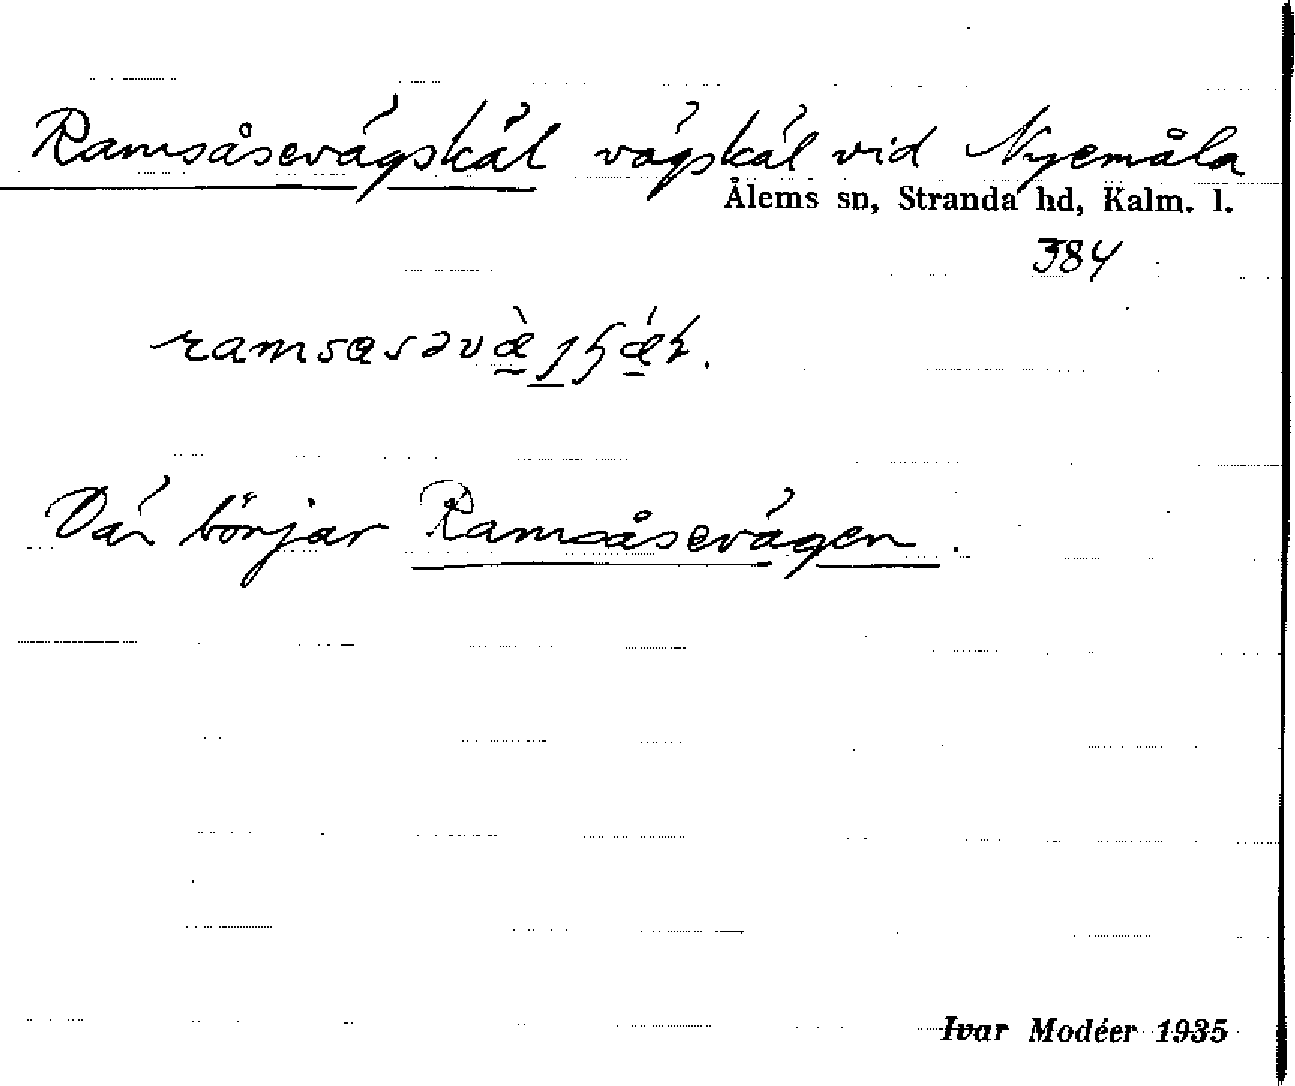 Ramsåsevägskäl vägskäl vid Nyemåla
Ålems sn, Stranda hd, Kalm. l.
384
Där börjar Ramsåsevägen.
Ivar Modéer 1935